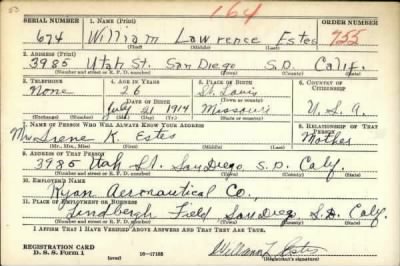 164
SERIAL NUMBER 1. NAME (Print) ORDER NUMBER
674 William Lawrence Estes 755
(First) (Middle) (Last)
2. ADDRESS (Print)
3985 Utah St. San Diego S.D. Calif.
(Number and street or R. F. D. number) (Town) (County) (State)
3. TELEPHONE 4. AGE IN YEARS 5. PLACE OF BIRTH 6. COUNTRY OF CITIZENSHIP
None 26 St. Louis
(Town or county)
DATE OF BIRTH
July 21 1914 Missouri U.S.A.
(Exchange) (Number) (Mo.) (Day) (Yr.) (State or country)
7. NAME OF PERSON WHO WILL ALWAYS KNOW YOUR ADDRESS 8. RELATIONSHIP OF THAT PERSON
Mrs Irene K. Estes Mother
(Mr., Mrs., Miss) (First) (Middle) (Last)
9. ADDRESS OF THAT PERSON
3985 Utah St. San Diego, S.D. Calif.
(Number and street or R. F. D. number) (Town) (County) (State)
10. EMPLOYER'S NAME
Ryan Aeronautical Co.,
11. PLACE OF EMPLOYMENT OR BUSINESS
Lindbergh Field San Diego, S.D. Calif.
(Number and street or R. F. D. number) (Town) (County) (State)
I AFFIRM THAT I HAVE VERIFIED ABOVE ANSWERS AND THAT THEY ARE TRUE.
REGISTRATION CARD
D. S. S. Form 1 (over) 16-17105 William L Estes
(Registrant's signature)